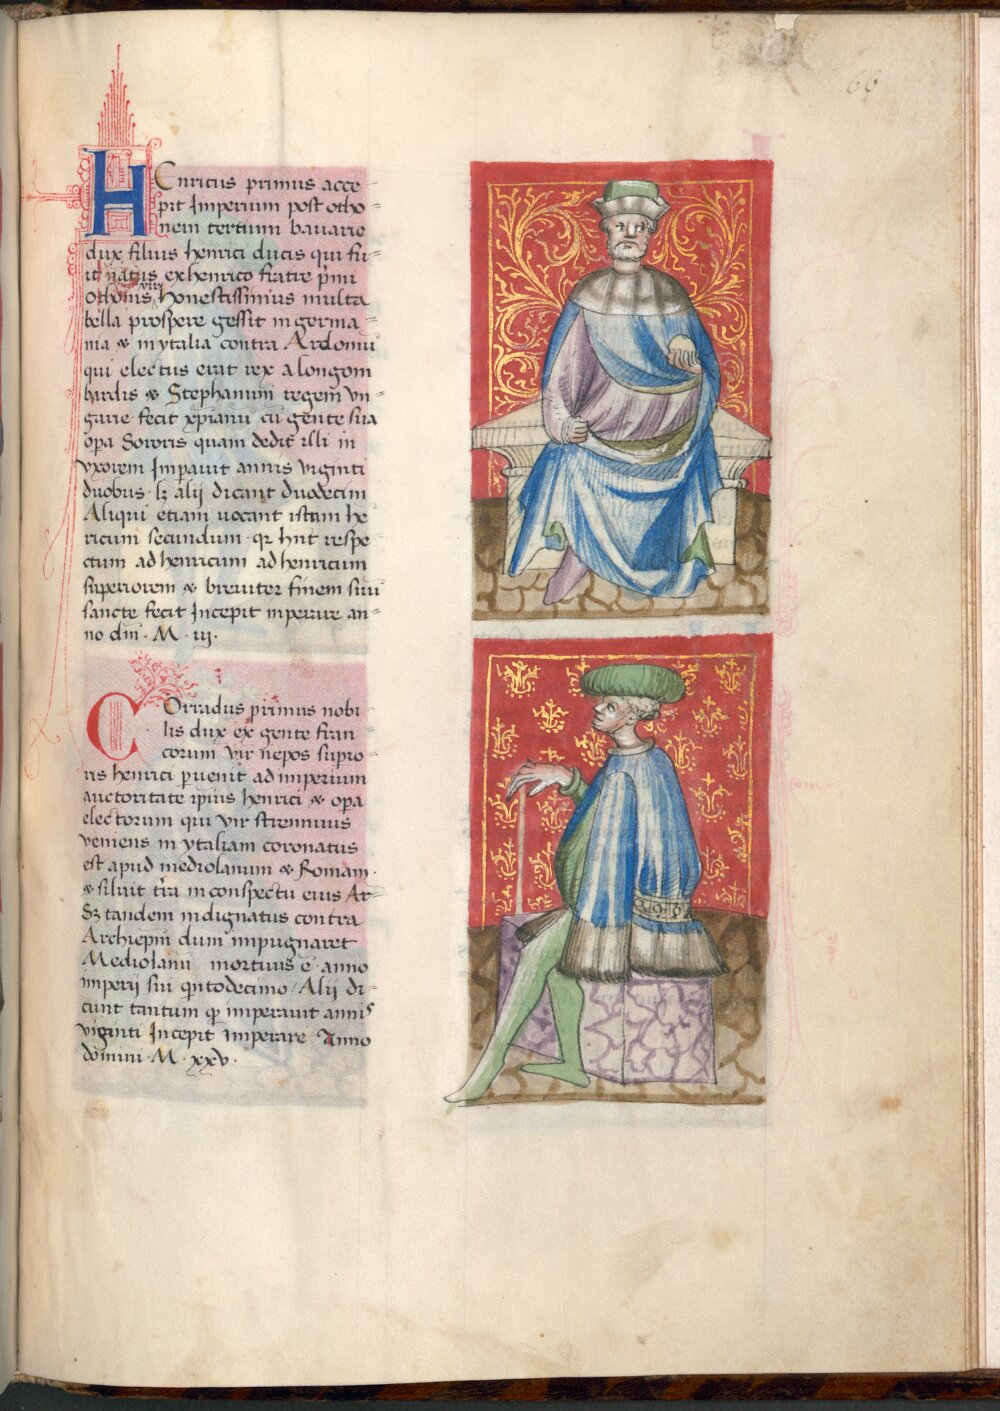 66
HEnricus primus acce-
pit Imperium post otho-
nem tertium bauarie
dux filius henrici ducis qui fu-
it natus ex henrico fratre p̄mi
othonis honestissimus multa
viiij
bella prospere gessit in germa-
nia & in ytalia contra Ardoinū
qui electus erat rex a longom
bardis & Stephanum regem vn
garie fecit xp̄ianū cū gente sua
opa Sororis quam dedit illi in
vxorem Imperauit annis viginti
duobus · sz alij dicant duodecim
Aliqui etiam uocant istum he
ricum secundum · qr hnt respe-
ctum ad henricum ad henricum
superiorem & breuiter finem suū
sancte fecit Incepit inperare an-
no dm̄ · M · iij ·
COrradus primus nobi
lis dux ex gente fran
corum Vir nepos supio-
ris henrici puenit ad imperium
auctoritate ip̄ius henrici & opa
electorum qui vir strennuus
veniens in ytaliam coronatus
est apud mediolanum & Romam ·
& siluit t̄ra in conspectu eius At-
Sz tandem indignatus contra
Archiep̄m dum impugnaret
Mediolanū mortuus ē · anno
imperii sui qntodecimo / Alij di-
cunt tantum q̄ imperauit annis
viginti Incepit Imperare Anno
domini · M · xxv ·